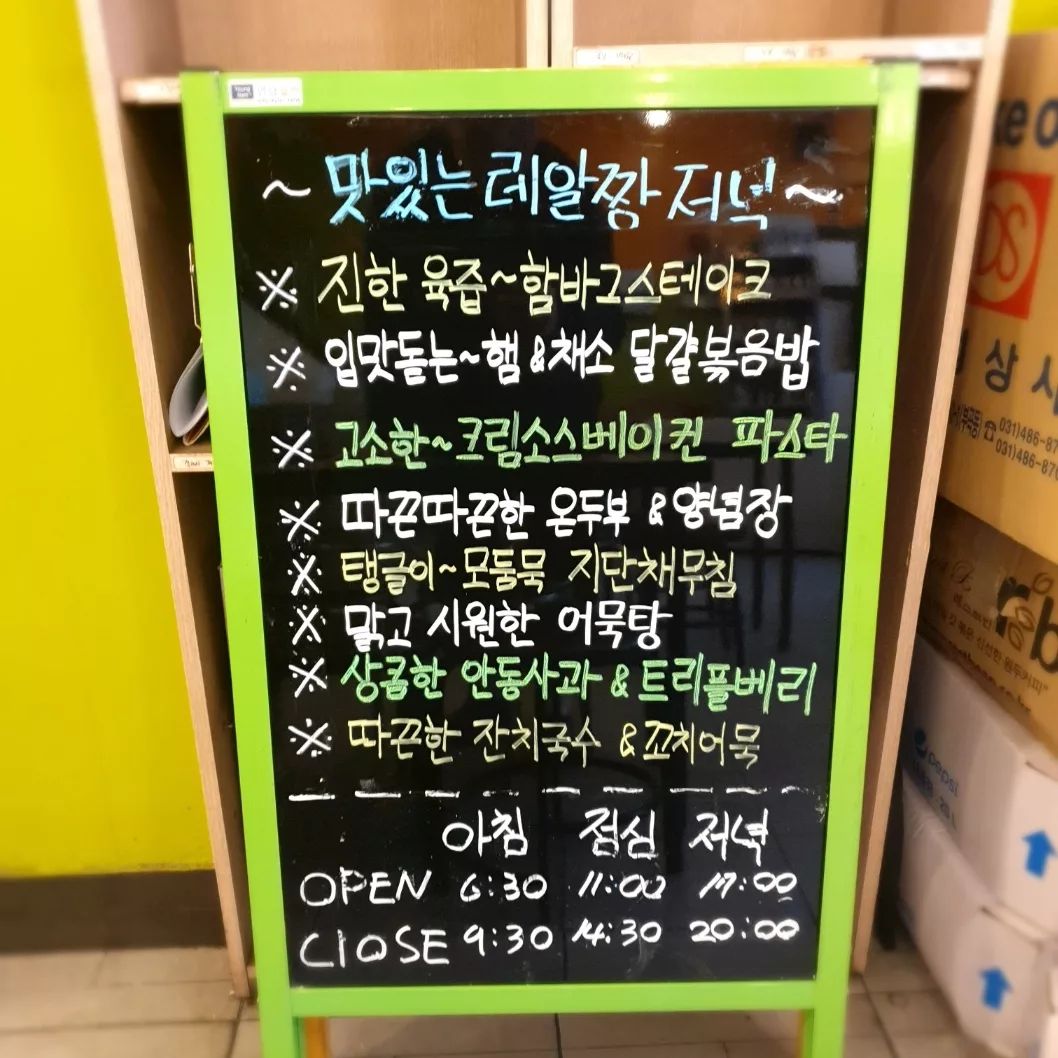 ~ 맛있는 레알짱 저녁 ~
※ 진한 육즙~함바그스테이크
※ 입맛돋는~햄&채소 달걀볶음밥
※ 고소한~크림소스베이컨 파스타
※ 따끈따끈한 온두부 & 양념장
※ 탱글이~모둠묵 지단채무침
※ 맑고 시원한 어묵탕
※ 상콤한 안동사과 & 트리플베리
※ 따끈한 잔치국수 & 꼬치어묵
아침 점심 저녁
OPEN 6:30 11:00 17:00
ClOSE 9:30 14:30 20:00
DS
상사
031)486-87
031)486-870
pepsi